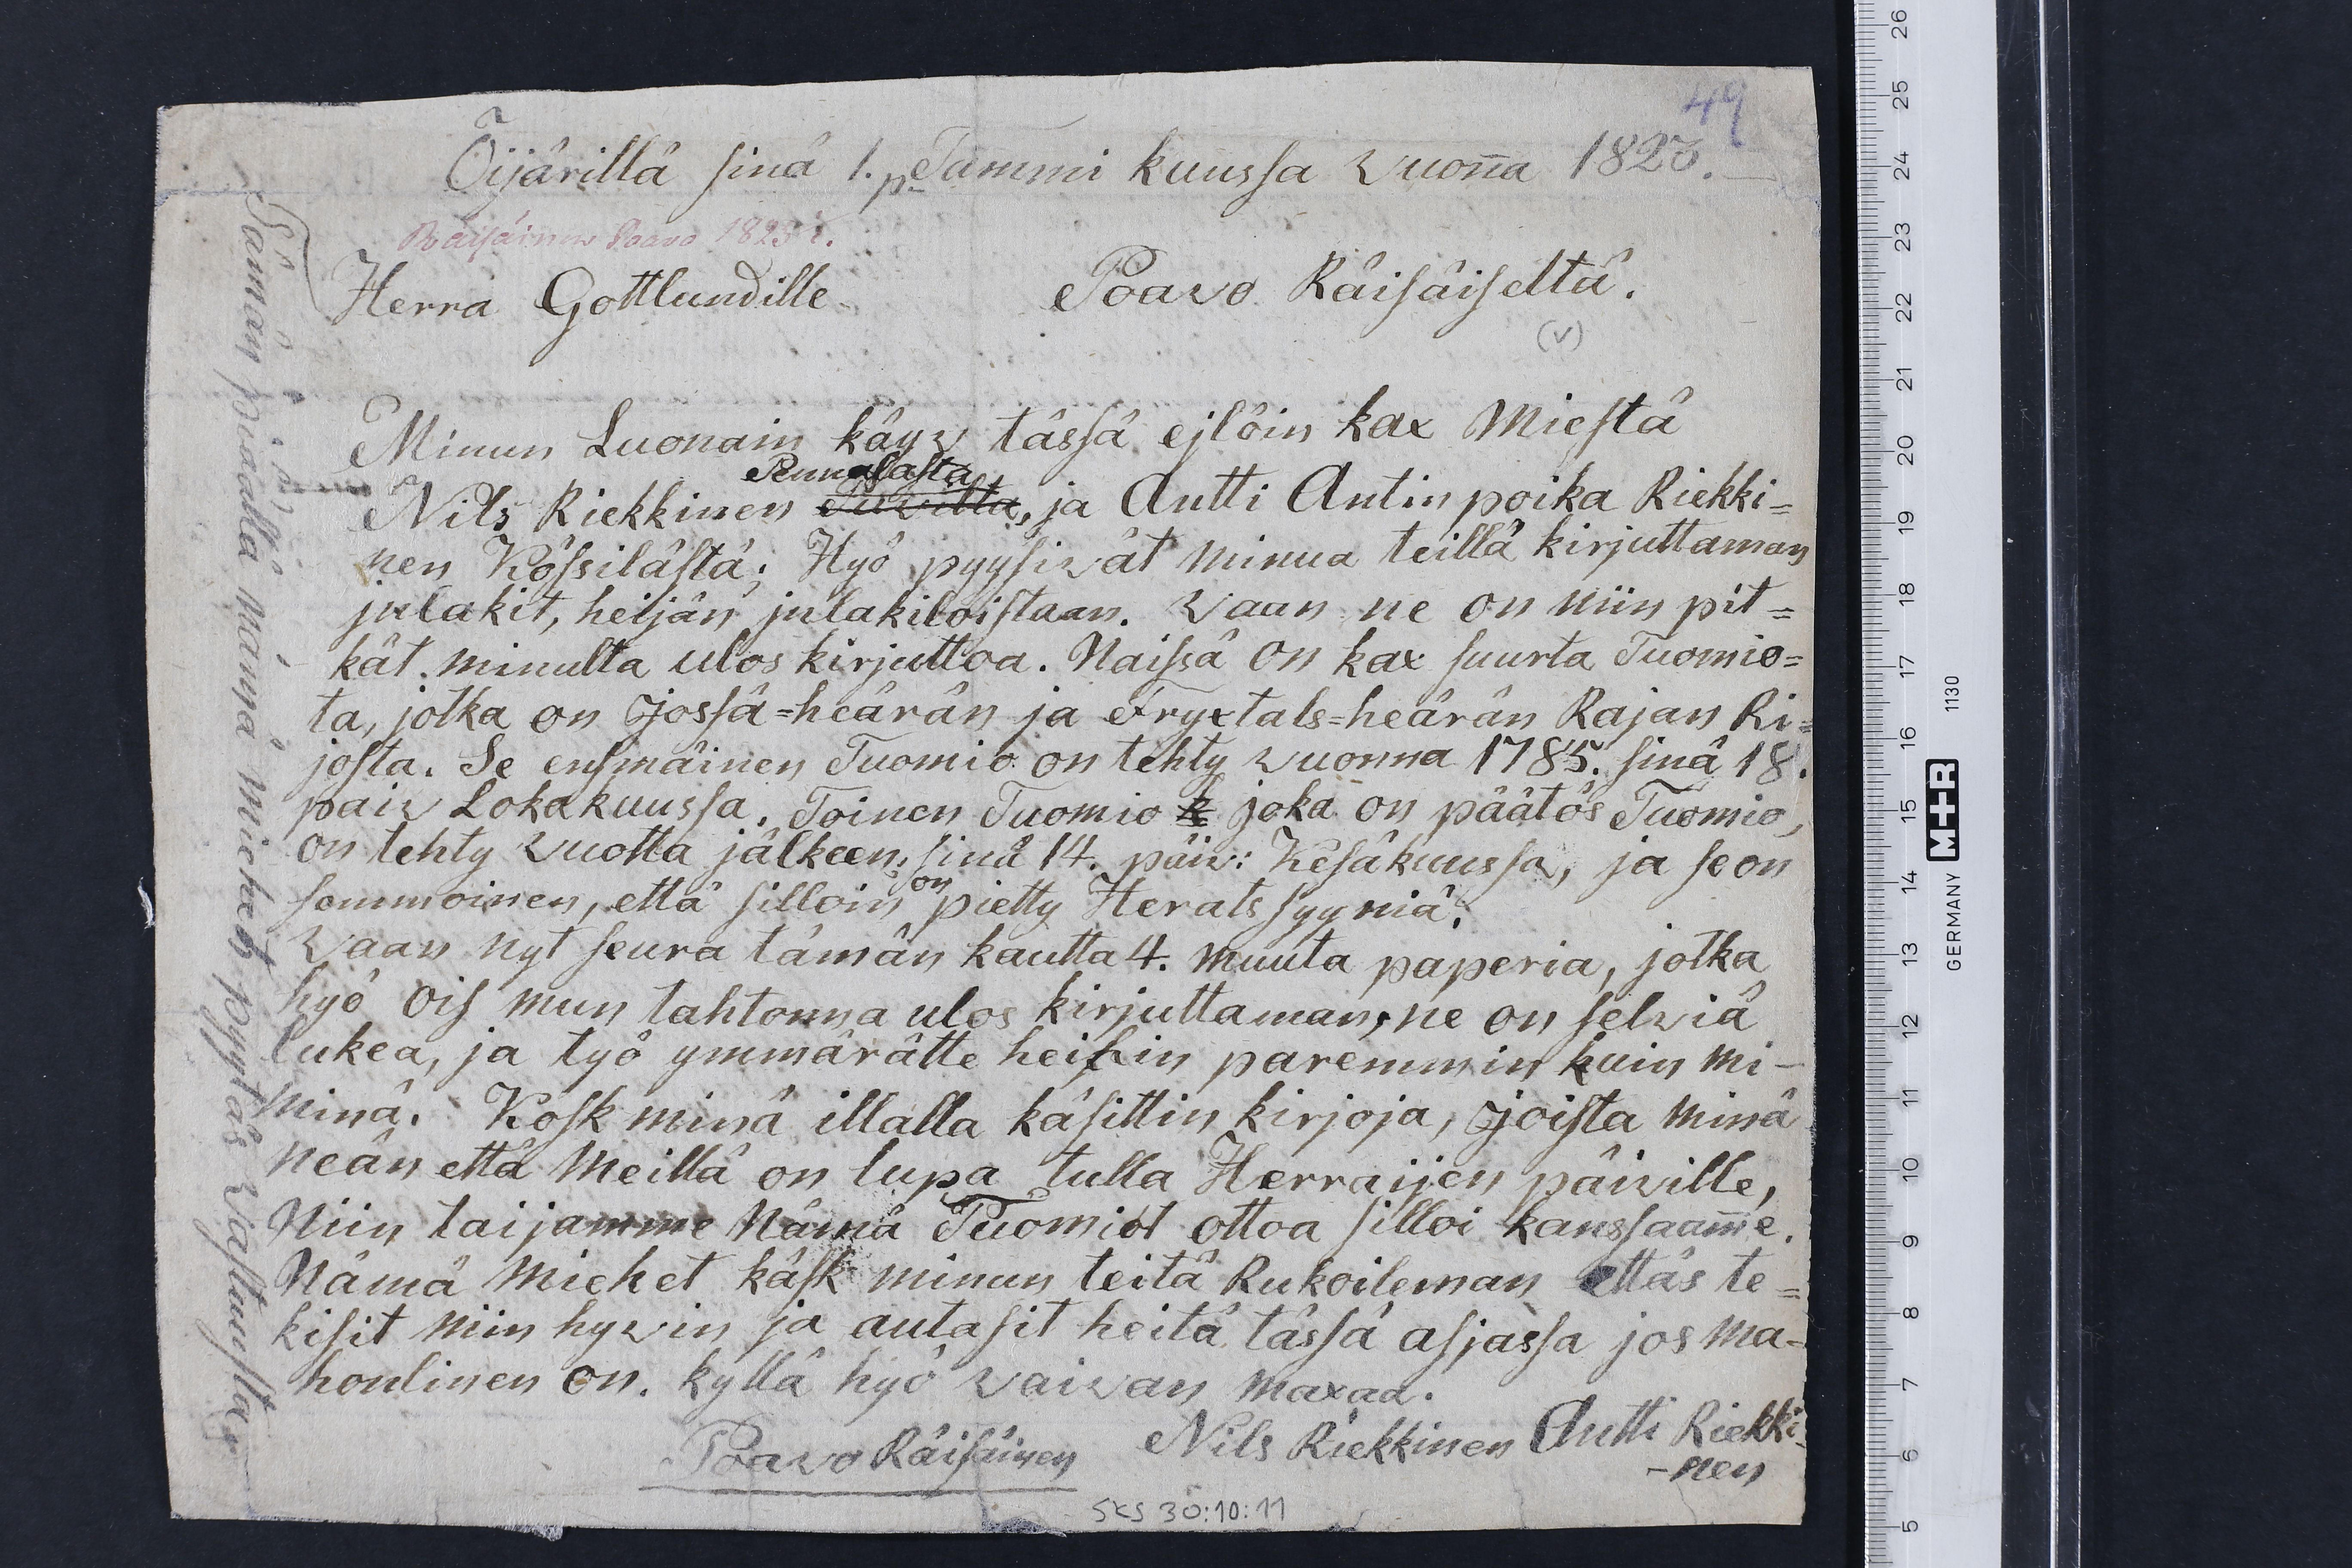 49
Öijärillä sinä 1. p Tammi kuussa vuoña 1823.
Räisäinen Paavo 1823 1/1.
Herra Gottlundille Poavo Räisäiseltä.
(v)
Minun Luonain käyv tässä ejlöin kax Miestä
Pennalasta
Nils Riekkinen, ja Antti Antin poika Riekki=
nen Kössilästä; Hyö pyysivät minua teillä kirjuttaman
julakit, heijän julakiloistaan. Vaan ne on niin pit=
kät minulta ulos kirjuttoa. Naissä on kax suurta Tuomio=
ta, jotka on Jossä=heärän ja Fryxtals=heärän Rajan Ri=
josta. Se ensmäinen Tuomio on tehty vuonna 1785. sinä 18.
paiv Lokakuussa. Toinen Tuomio joka on päätös Tuomio,
on tehty vuotta jälkeen, sinä 14. päiv: Kesäkuussa, ja se on
on
semmoinen, että silloin pietty Herats syyniä.
Vaan nyt seura tämän kautta 4. muuta paperia, jotka
hyö ois mun tahtonna ulos kirjuttaman, ne on selviä
lukea, ja työ ymmärätte heihin paremmin kuin mi-
minä. Kosk minä illalla käsittin kirjoja, Joista minä
neän että Meillä on lupa tulla Herraijen päiville,
Niin taijamme Nämä Tuomiot ottoa silloi kanssaam̃e.
Nämä Miehet käsk minun teitä Rukoileman ettäs te=
kisit niin hyvin ja autasit heitä tässä asjassa jos ma-
honlinen on. kyllä hyö vaivan maxaa.
Poavo Räisäinen Nils Riekkinen Antti Riekki-
-nen
Tämän piäällä männä miehet pyytäs vastausta
SKS 30:10:11
26
25
24
23
22
21
20
19
18
17
16
15
14
13
12
11
10
9
8
7
6
5
GERMANY M+R 1130